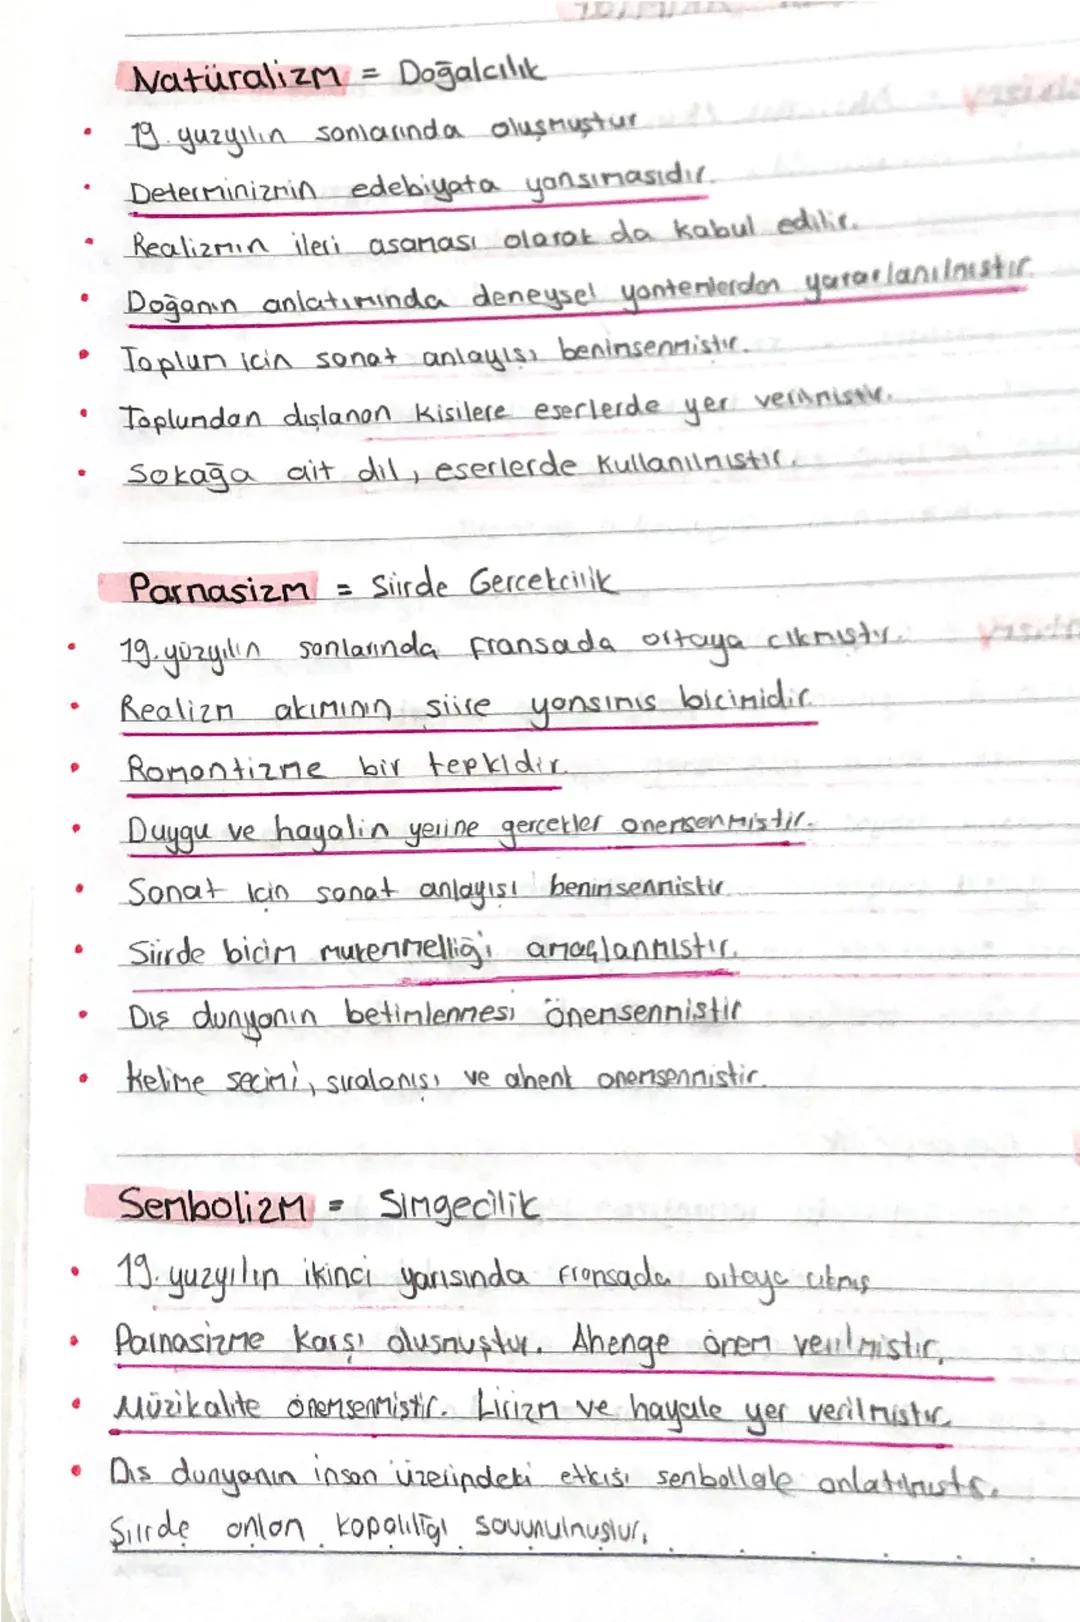 Natüralizm = Doğalcılık
• 19. yuzyılın sonlarında oluşmuştur
• Determinizmin edebiyata yansımasıdır.
• Realizmin ileri asaması olarak da kabul edilir.
• Doğanın anlatımında deneysel yontemlerden yararlanılmıstır.
• Toplum icin sanat anlayışı benimsenmistir.
• Toplumdan dışlanan kisilere eserlerde yer verilmistir.
• Sokağa ait dil, eserlerde kullanılmıstır.
Parnasizm = Siirde Gercekcilik
• 19. yüzyılın sonlarında fransada ortaya cıkmıstır.
• Realizm akımının siire yansımıs bicimidir.
• Romantizme bir tepkidir.
• Duygu ve hayalin yerine gercekler onemsenmistir.
• Sanat icin sanat anlayısı benimsenmistir.
• Siirde bicim mukemmelliği amaçlanmıstır.
• Dış dunyanın betimlenmesi önemsenmistir
• Kelime secimi, sıralanışı ve ahenk onemsenmistir.
Sembolizm = Simgecilik
• 19. yuzyılın ikinci yarısında fransada ortaya cıkmış
• Parnasizme karşı olusmuştur. Ahenge önem verilmistir.
• Müzikalite önemsenmiştir. Lirizm ve hayale yer verilmistir.
• Dıs dunyanın insan üzerindeki etkisi sembollerle anlatılmıstır.
Şiirde anlam kapalılığı savunulmuştur.